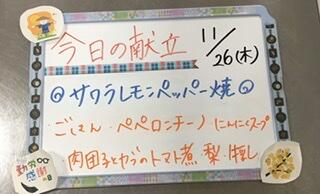 今日の献立 11/26(木)
サワラレモンペッパー焼
・ごはん・ペペロンチーノ・にんにくスープ
肉団子とカブのトマト煮・梨・牛乳
勤労感謝の日